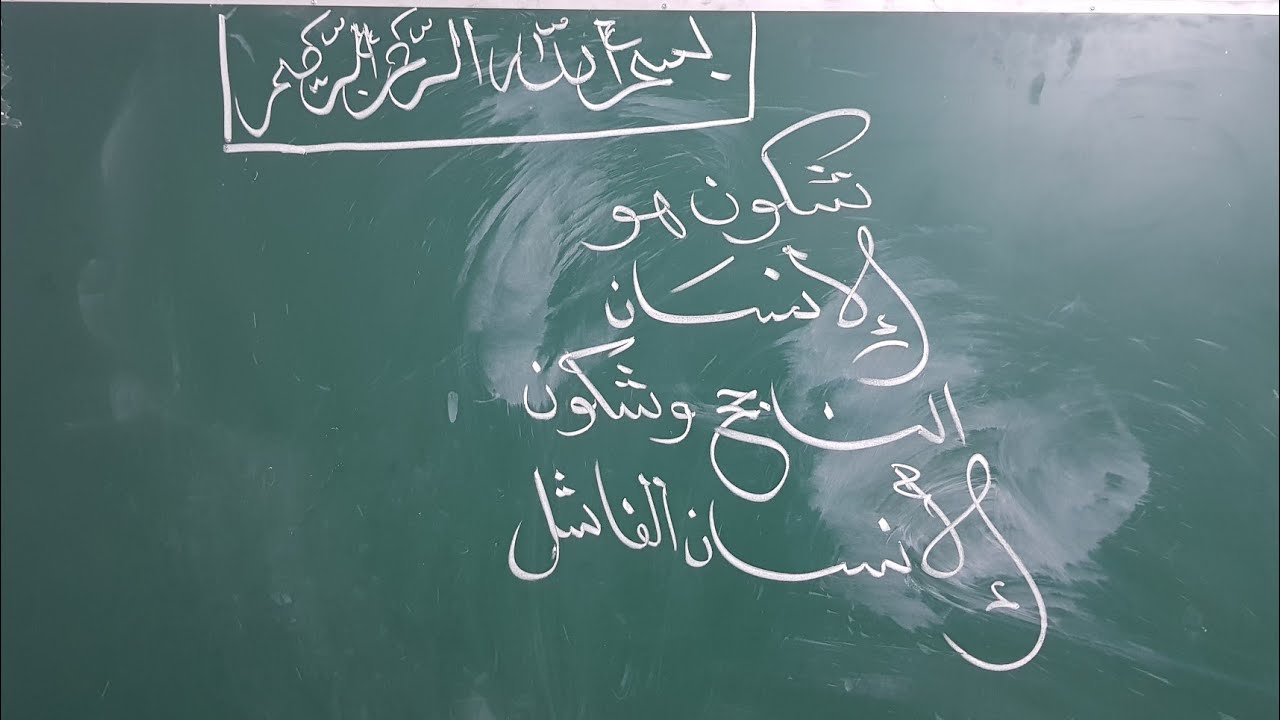 بسم الله الرّحمن الرّحيم
شكون هو
الإنسان
الناجح وشكون
الإنسان الفاشل